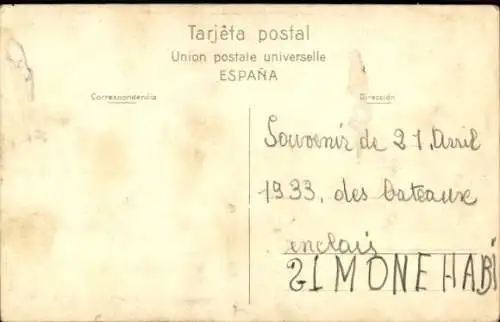 Tarjéta postal
Union postale universelle
ESPAÑA
Correspondencia
Dirección
Souvenir de 21. Avril
1933. des bateaux
enclais
SIMONE HABI